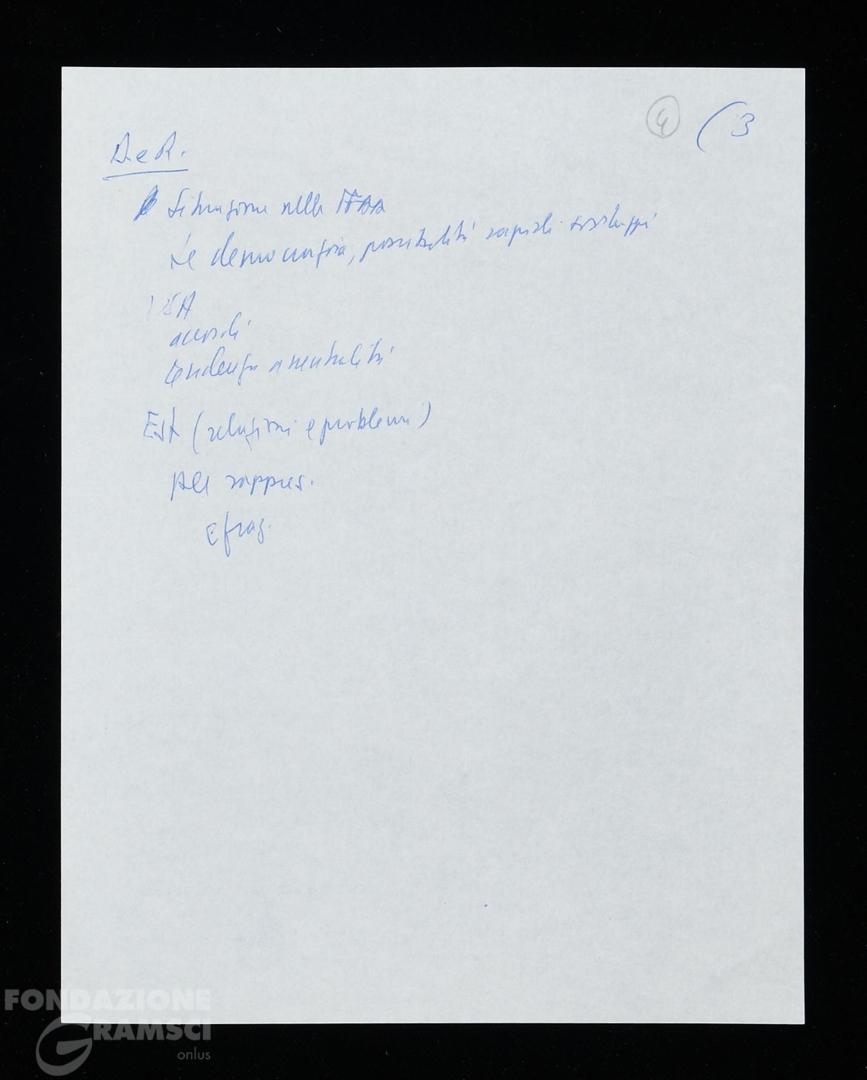 4 (3
D e R.
Situazione nelle FFAA
se democrazia, possibilità rapidi sviluppi
USA
accordi
tendenza a neutralità
Est (relazioni e problemi)
All rappres.
E frag.
FONDAZIONE
GRAMSCI
onlus